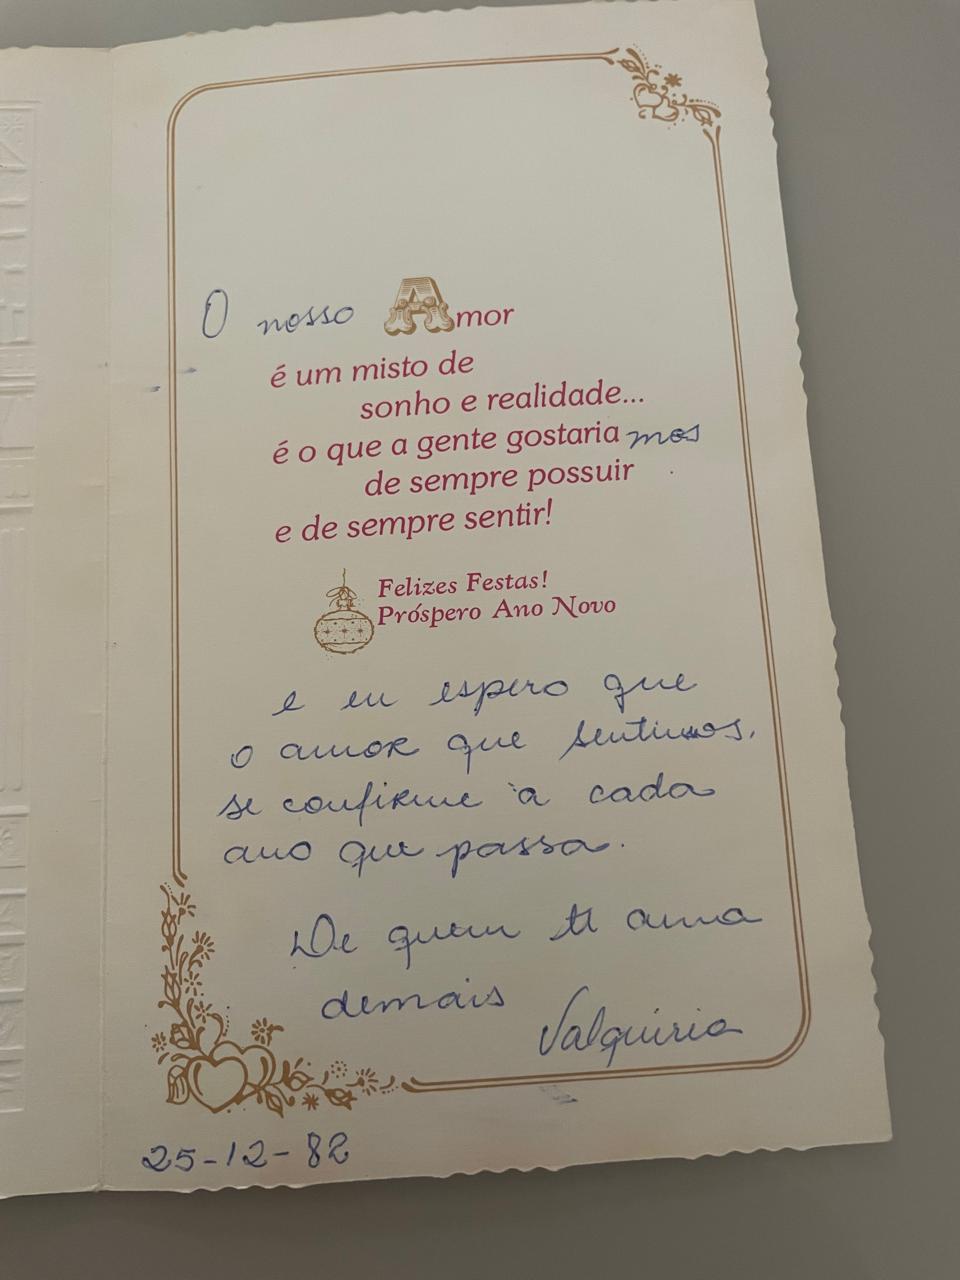 O nosso Amor
é um misto de
sonho e realidade...
é o que a gente gostaria mos
de sempre possuir
e de sempre sentir!
Felizes Festas!
Próspero Ano Novo
e eu espero que
o amor que sentimos,
se confirme a cada
ano que passa.
De quem te ama
demais
Valquiria
25-12-82